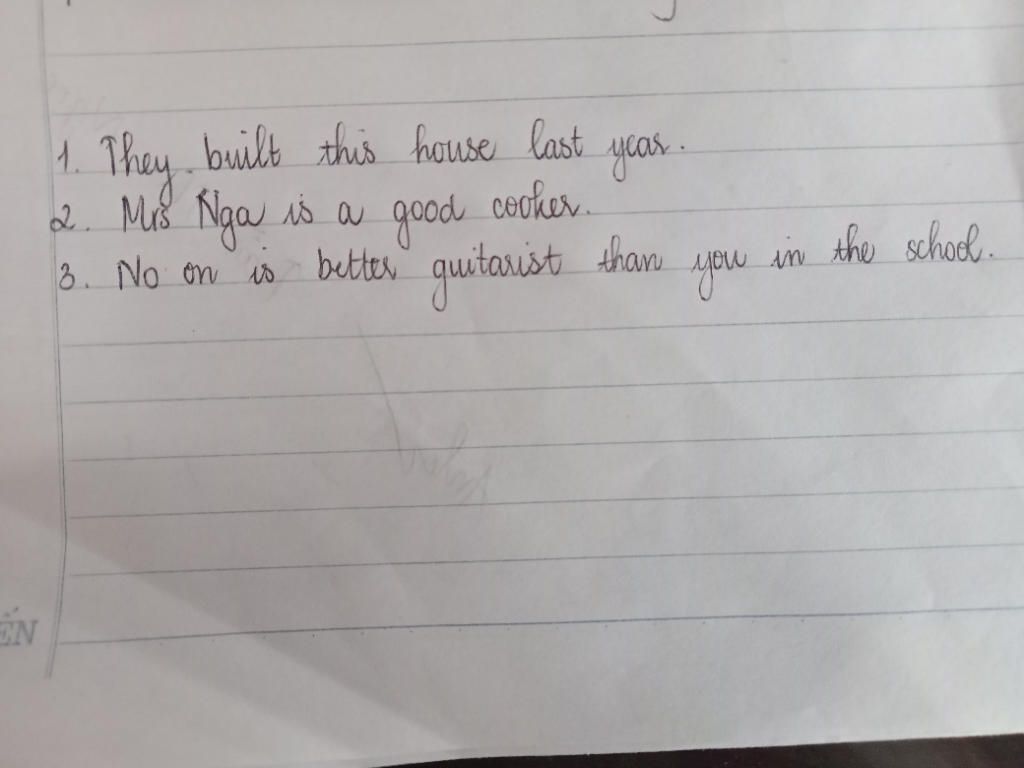 1. They built this house last year.
2. Mrs Nga is a good cooker.
3. No on is better guitarist than you in the school.
ẾN